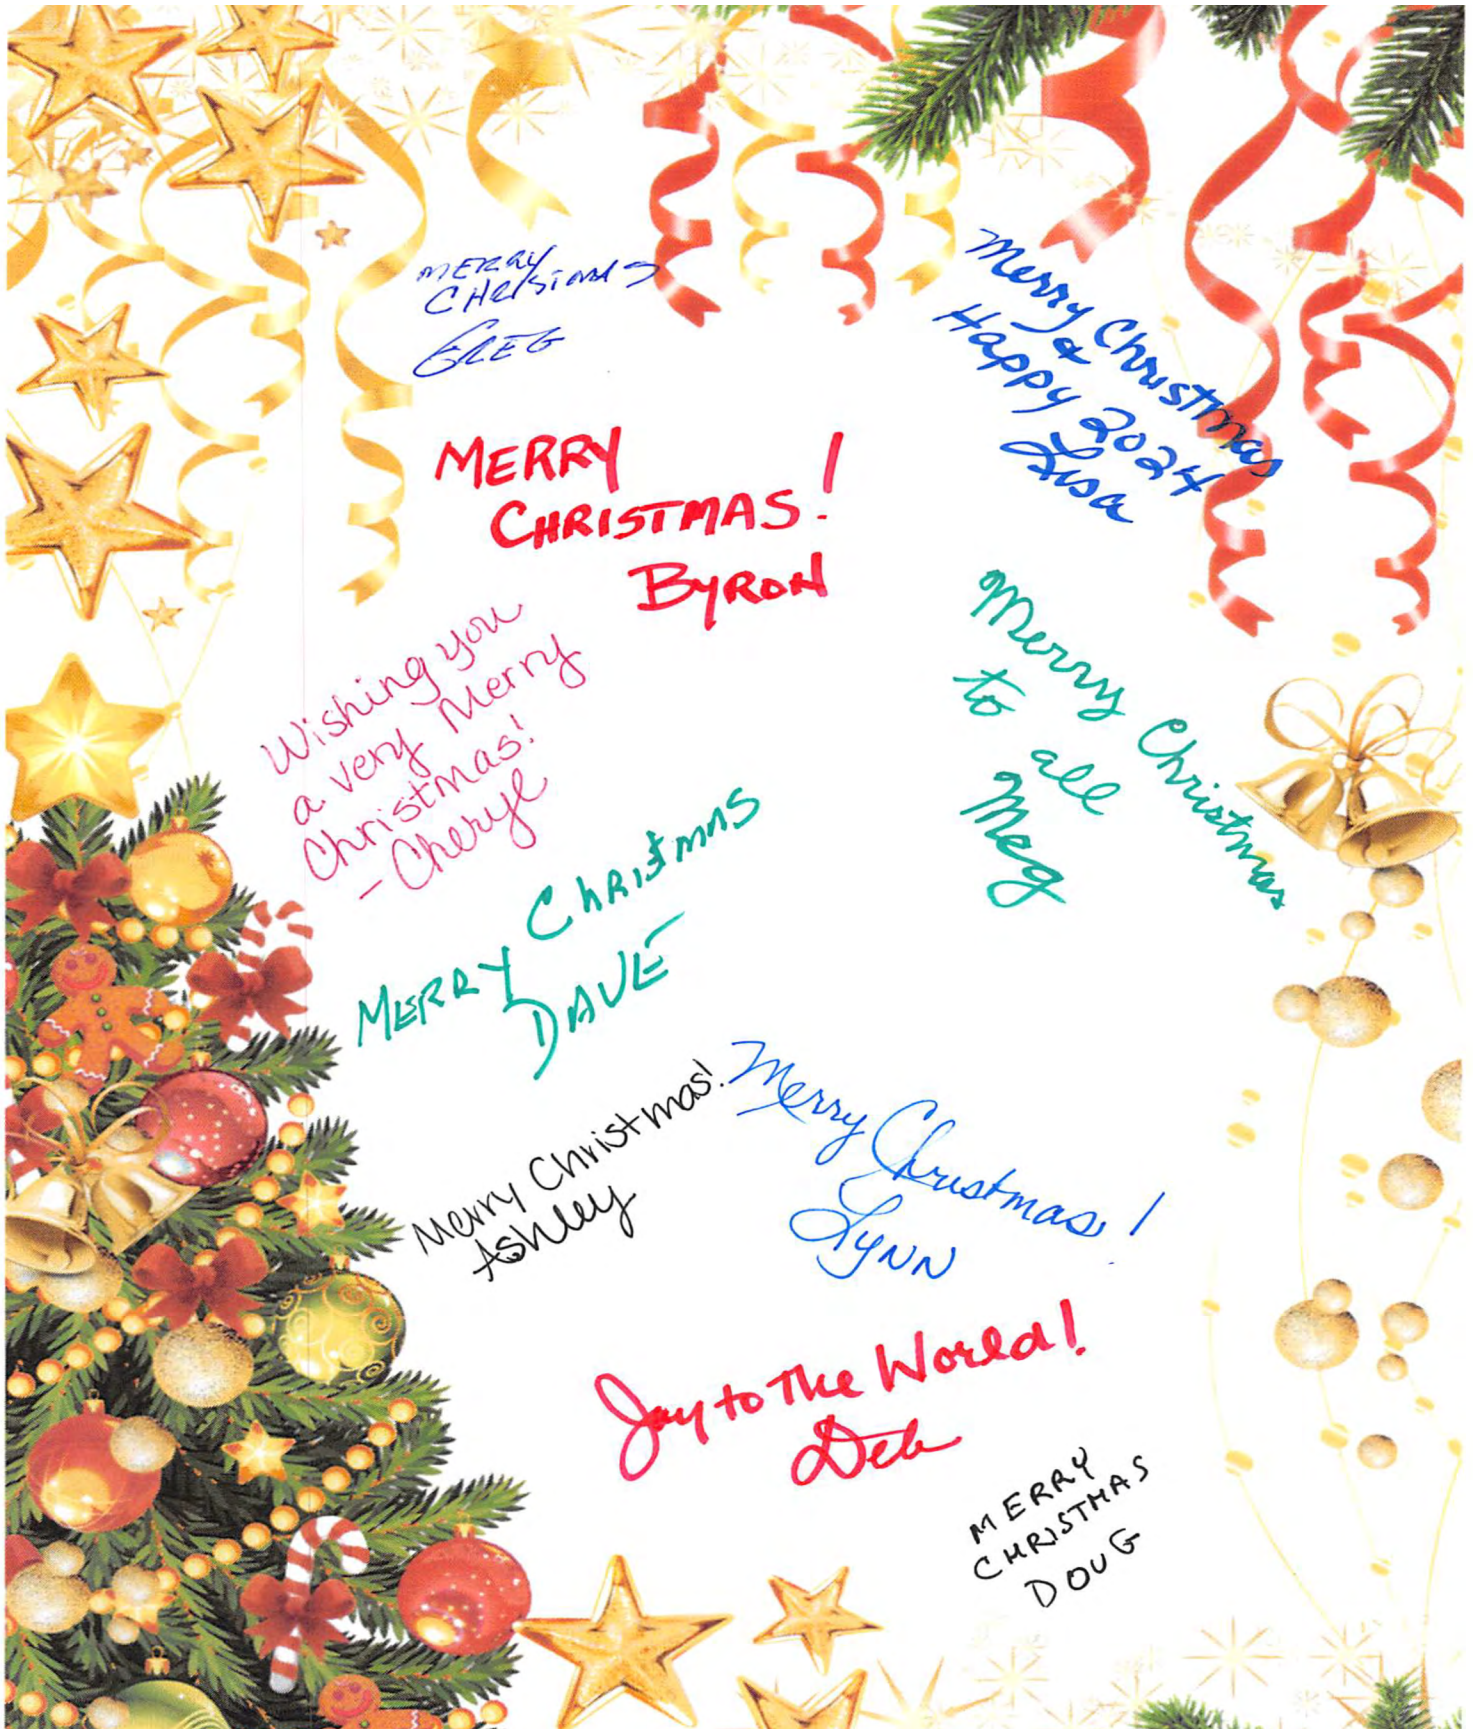 MERRY
CHRISTMAS
GREG
Merry Christmas
&
Happy 2024
Lisa
MERRY
CHRISTMAS!
BYRON
Wishing you
a very Merry
Christmas!
- Cheryl
Merry Christmas
to all
Meg
MERRY Christmas
DAVE
Merry Christmas!
Ashley
Merry Christmas!
Lynn
Joy to The World!
Deb
MERRY
CHRISTMAS
DOUG